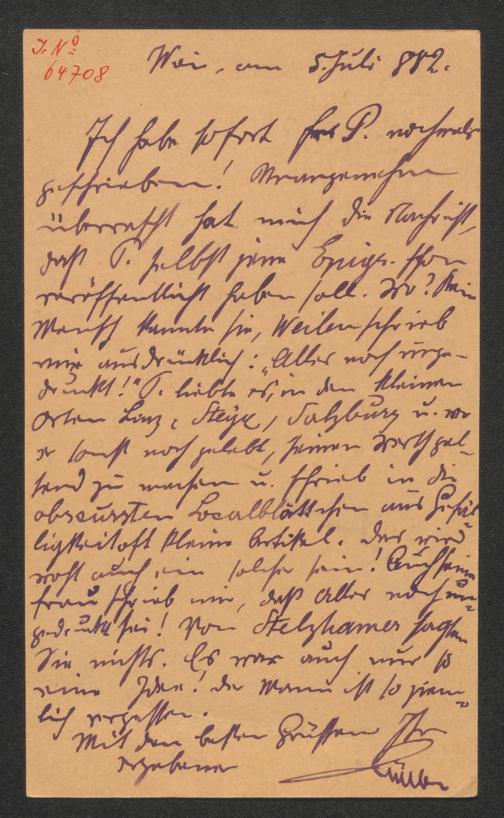 J. Nº
64708
Wien, am 5. Juli 882.
Ich habe sofort Frl P. nochmals
geschrieben! Unangenehm
überrascht hat mich die Nachricht,
daß P. selbst jene Epigr. schon
veröffentlicht haben soll. Wo? Kein
Mensch kannte sie, Weilen schrieb
mir ausdrücklich: „Alles noch unge-
druckt!" P. liebte es, in den kleinen
Orten Linz, Steyr, Salzburg u. wo
er sonst noch gelebt, seinen Werth gel-
tend zu machen u. schrieb in die
obscursten Localblättchen aus Gefäl-
ligkeit oft kleine Artikel. Das wird
wohl auch ein solcher sein! Auch seine
Frau schrieb mir, daß Alles noch un-
gedruckt sei! Von Stelzhamer sagten
Sie nichts. Es war auch nur so
eine Idee! Der Mann ist so ziem-
lich vergessen.
Mit den besten Grüssen Ihr
ergebener